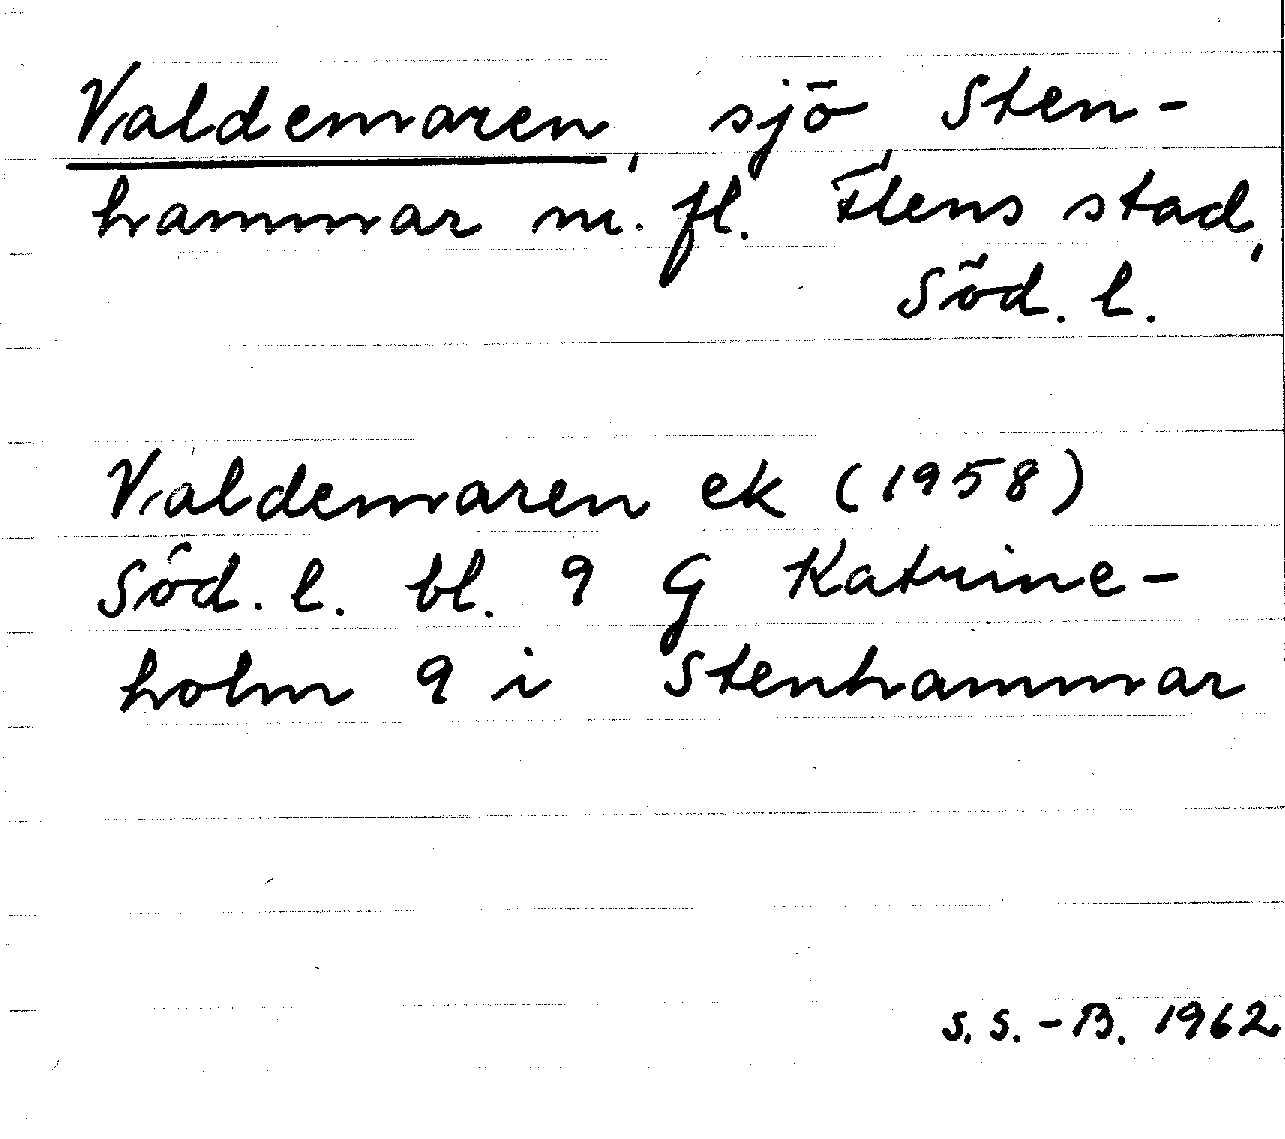 Valdemaren, sjö, Sten-
hammar m. fl. Flens stad,
Söd. l.
Valdemaren ek (1958)
Söd. l. bl. 9 G Katrine-
holm 9 i Stenhammar
S.S.-B. 1962